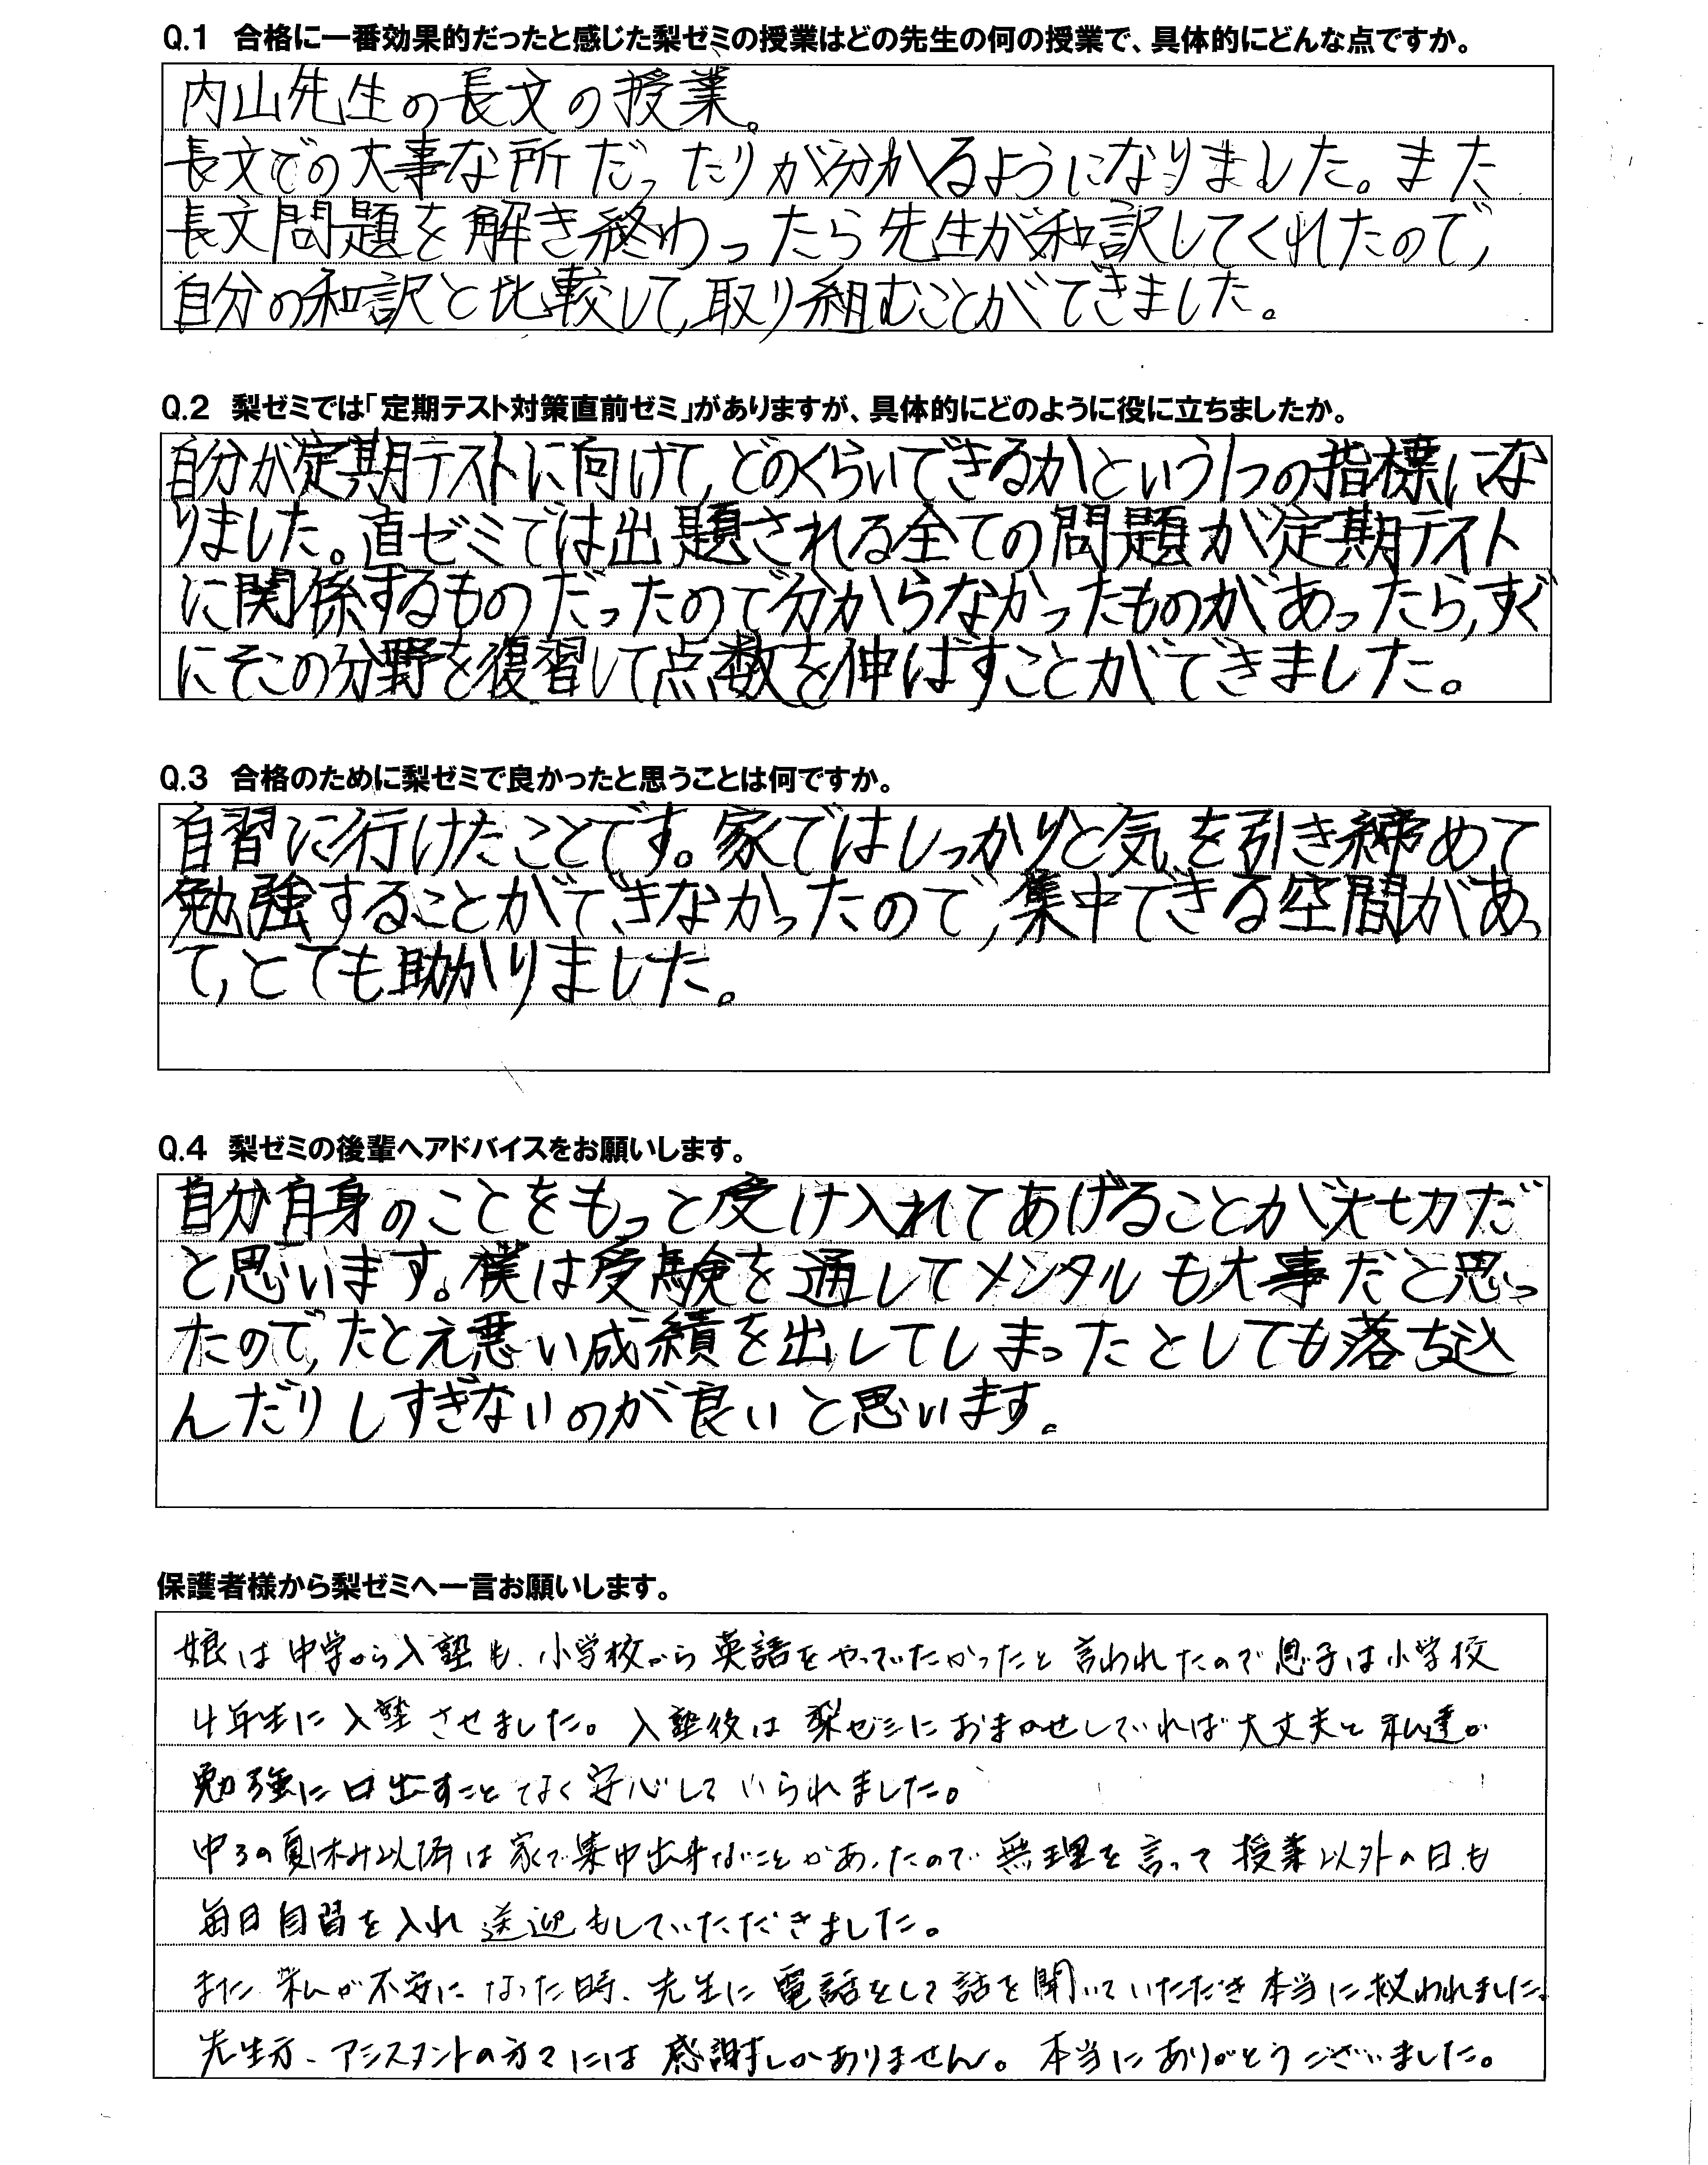 Q.1 合格に一番効果的だったと感じた梨ゼミの授業はどの先生の何の授業で、具体的にどんな点ですか。
内山先生の長文の授業。
長文での大事な所だったりが分かるようになりました。また
長文問題を解き終わったら先生が和訳してくれたので,
自分の和訳と比較して,取り組むことができました。
Q.2 梨ゼミでは「定期テスト対策直前ゼミ」がありますが、具体的にどのように役に立ちましたか。
自分が定期テストに向けて,どのくらいできるかという1つの指標にな
りました。直ゼミでは出題される全ての問題が定期テスト
に関係するものだったので分からなかったものがあったら,すぐ
にそこの分野を復習して点数を伸ばすことができました。
Q.3 合格のために梨ゼミで良かったと思うことは何ですか。
自習に行けたことです。家ではしっかりと気を引き締めて
勉強することができなかったので,集中できる空間があっ
て,とても助かりました。
Q.4 梨ゼミの後輩へアドバイスをお願いします。
自分自身のことをもっと受け入れてあげることが大切だ
と思います。僕は受験を通してメンタルも大事だと思っ
たので,たとえ悪い成績を出してしまったとしても落ち込
んだりしすぎないのが良いと思います。
保護者様から梨ゼミへ一言お願いします。
娘は中学から入塾も、小学校から英語をやっていたかったと言われたので息子は小学校
4年生に入塾させました。入塾後は梨ゼミにおまかせしていれば大丈夫と私達が
勉強に口出すことなく安心していられました。
中3の夏休み以降は家で集中出来ないことがあったので無理を言って授業以外の日も
毎日自習を入れ送迎もしていただきました。
また私が不安になった時、先生に電話をして話を聞いていただき本当に救われました。
先生方、アシスタントの方々には感謝しかありません。本当にありがとうございました。